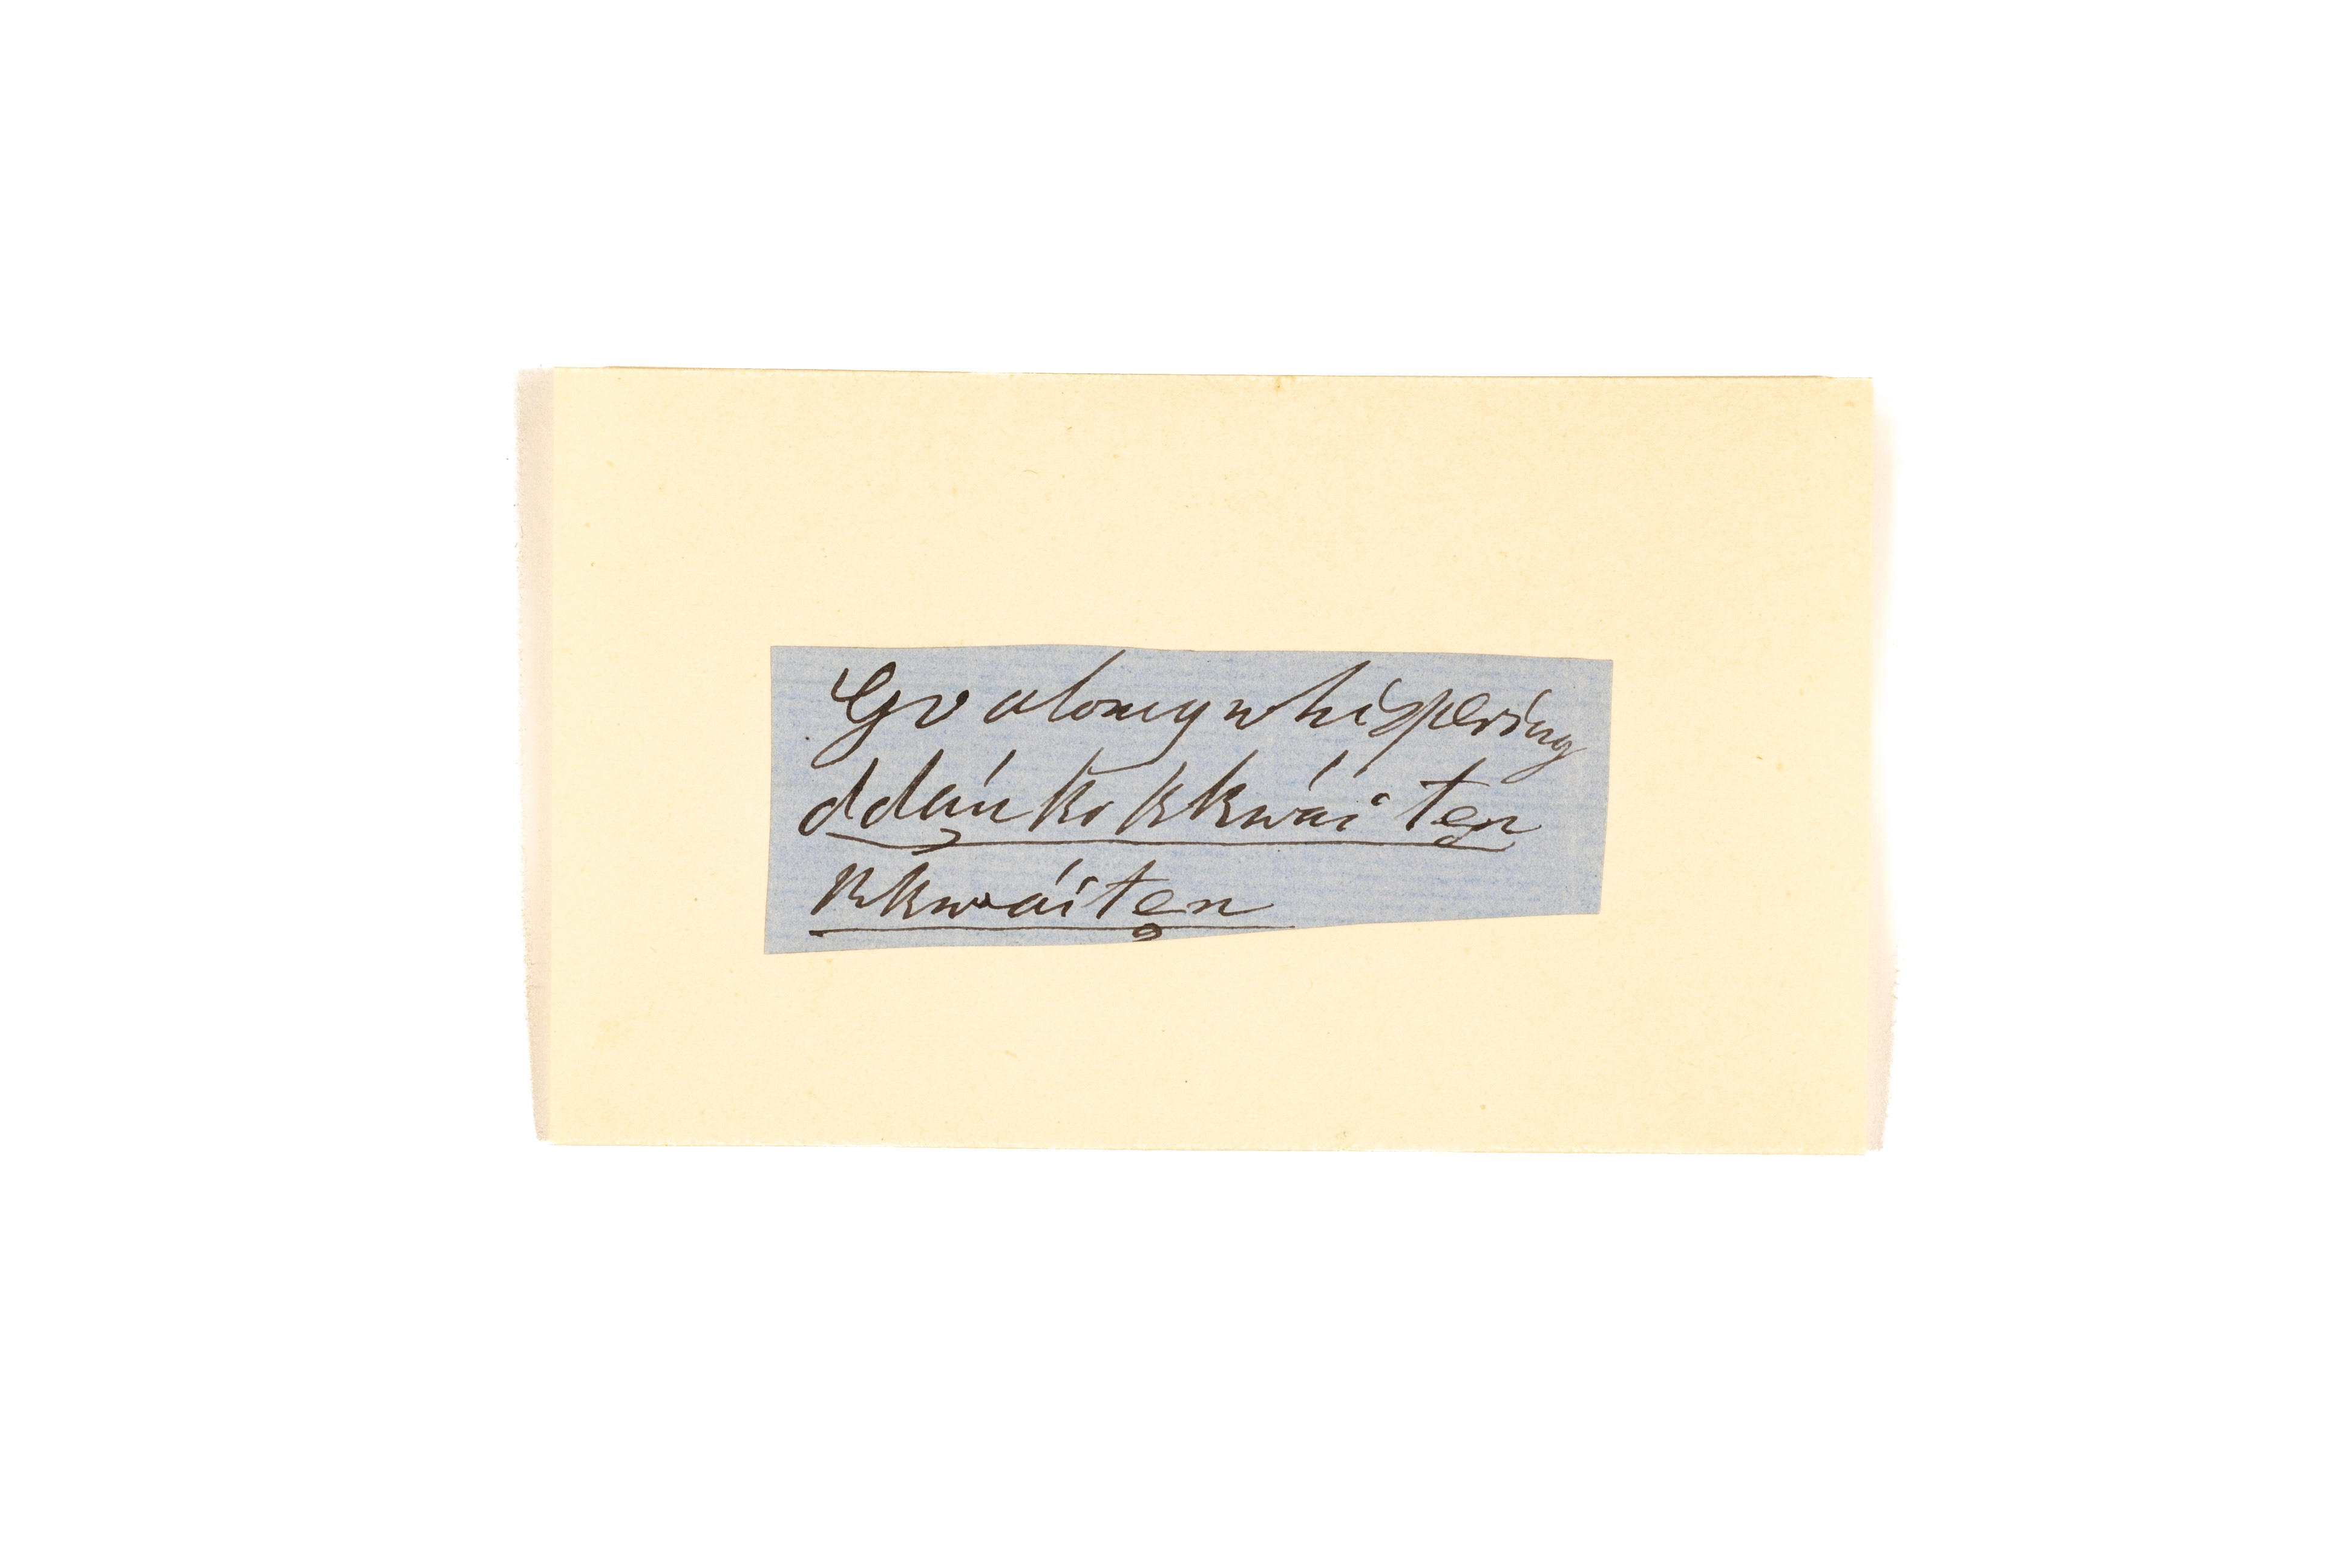 Go along whispering
ddą́ko kkwáį ten
kkwáiten